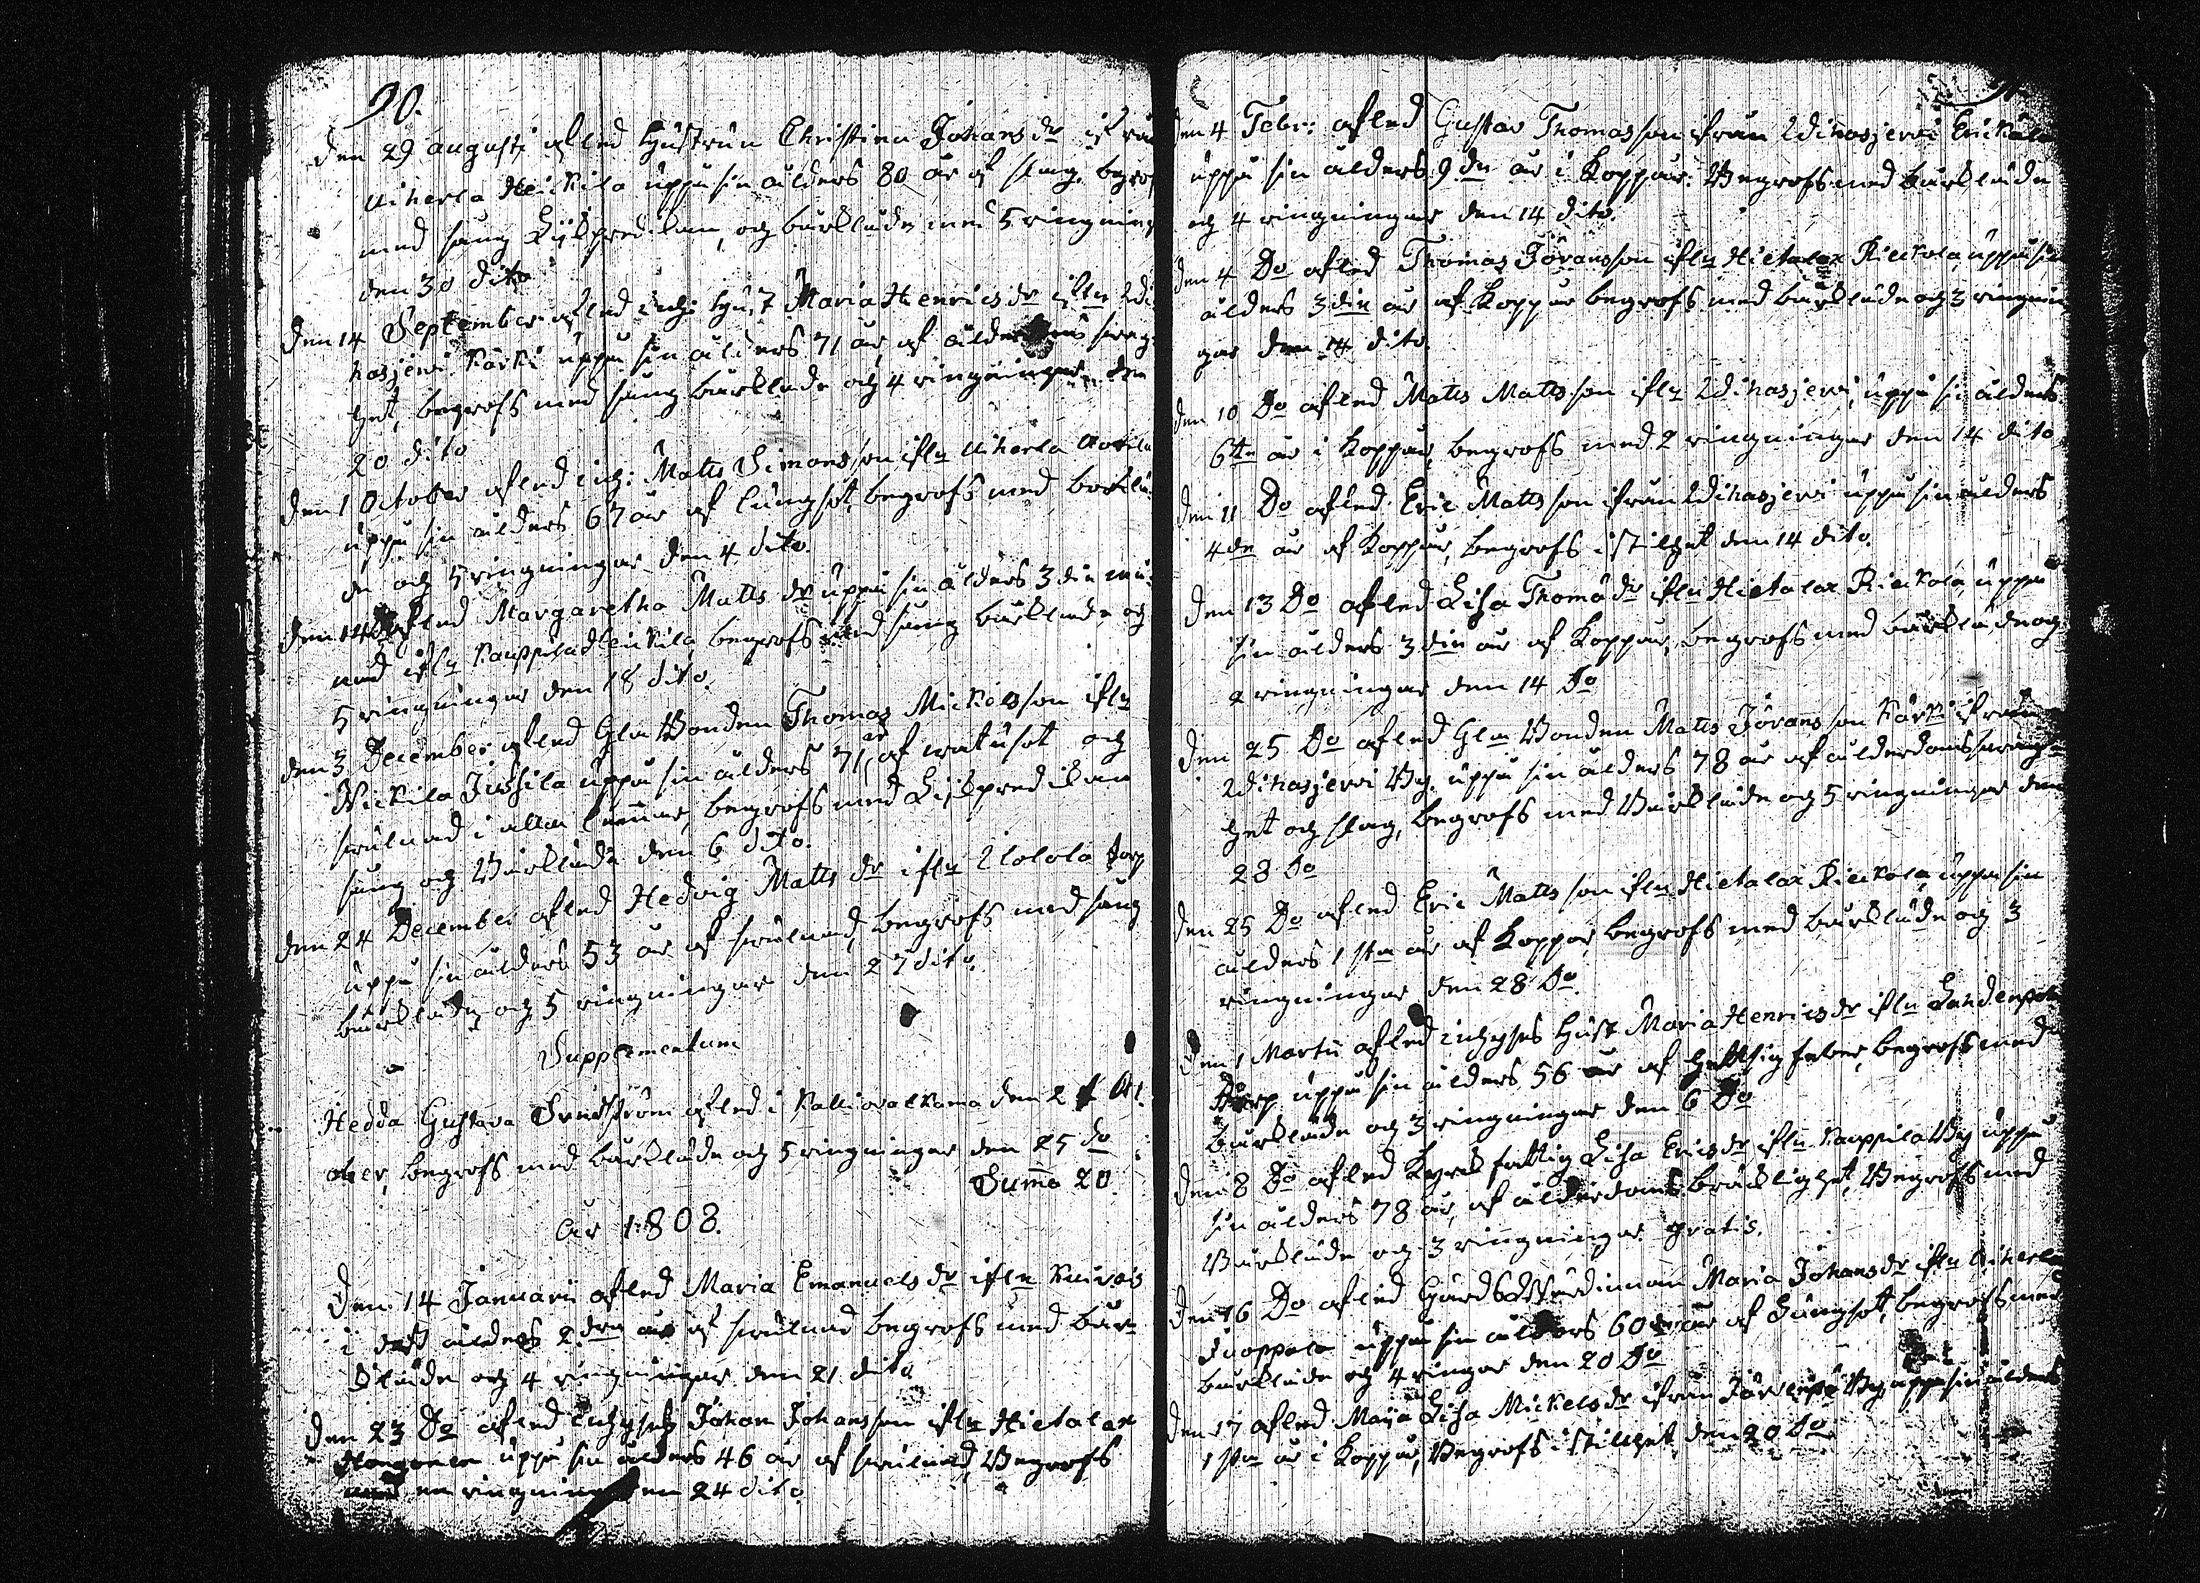 90.
den 29 augusti afled Hustrun Christina Johans dr ifrån
Uiherla Heickilä uppå sin ålders 80 år af slag, begrofs
med sång Lijkpredikan, och bårkläde med 5 ringningar
den 30 dito
den 14 September afled Hust Maria Henrics dr ifrån Idi-
hasjerwi Kärki uppå sin ålders 71 år, af ålderdoms swag-
het, begrofs med sång bårkläde och 4 ringningar den
20 dito
den 1 October afled inh: Matts Simonsson ifrån Uiherla
uppå sin ålders 67 år af lungsot, begrofs med bårklä-
de och 5 ringningar den 4 dito.
den 14 afled Margaretha Matts dr uppå sin ålders 3die må-
nad ifrån Kauppila Heickilä, begrofs med sång bårkläde och
5 ringningar den 18 dito.
den 3 December afled Gla Bonden Thomas Mickelsson ifrån
Nickila Jussila uppå sin ålders 71 år af watusot och
swulnad i alla lemmar, begrofs med Lijkpredikan
sång och Bårkläde den 6 dito.
den 24 December afled Hedvig Matts dr ifrån Ilolola torp
uppå sin ålders 53 år af swulnad, begrofs med sång
bårkläde och 5 ringningar den 27 dito.
Supplementum
Hedda Gustava afled i Kallioalkama den 21 Oct-
ober, begrofs med bårkläde och 5 ringningar den 25 do
Suma 20.
År 1808.
Den 14 Januarii afled Maria Emanuels dr ifrån Kuivois
i dess ålders 2dra år af swulnad begrofs med bår-
kläde och 4 ringningar den 21 dito
den 23 Do afled Inhyses Johan Johansson ifrån Hietalax
uppå sin ålders 46 år af swulnad, Begrofs
med en ringning den 24 dito
den 4 Febr: afled Gustav Thomasson ifrån Idihasjerwi
uppå sin ålders 9de år i Koppår. Begrofs med bårkläde
och 4 ringningar den 14 dito.
den 4 Do afled Thomas Jöransson ifrån Hietalax Rieckola, uppå sin
ålders 3die år af Koppår begrofs med bårkläde och 3 ringnin-
gar den 14 dito
den 10 Do afled Matts Mattsson ifrån Idihasjerwi, uppå sin ålders
6te år i Koppår, begrofs med 2 ringningar den 14 dito
den 11 Do afled Eric Mattsson ifrån Idihasjerwi uppå sin ålders
4de år af Koppår, begrofs i stilhet den 14 dito.
den 13 Do afled Lisa Thomæ dr ifrån Hietalax Rieckola, uppå
sin ålders 3die år af Koppår, begrofs med bårkläde och
2 ringningar den 14 Do
den 25 Do afled Gla Bonden Matts Jöransson Kärki ifrån
Idihasjerwi By, uppå sin ålders 78 år af ålderdoms swag-
het och slag, begrofs med Bårkläde och 5 ringningar den
28 Do
den 25 Do afled Eric Mattsson ifrån Hietalax Rieckola, uppå sin
ålders 1sta år af Koppor, begrofs med bårkläde och 3
ringningar den 28 Do.
den 1 Martii afled inhyses Hust Maria Henrics dr ifrån
Torp uppå sin ålders 56 år af hettsig feber, begrofs med
bårkläde och 3 ringningar den 6 Do
den 8 Do afled Kyrkfattig Lisa Erics dr ifrån Kauppila By uppå
sin ålders 78 år, af ålderdoms bräcklighet, Begrofs med
Bårkläde och 3 ringningar gratis.
den 16 Do afled Gårds Wärdinnan Maria Johans dr ifrån Uiherla
Suoppala uppå sin ålders 60 år af Lungsot, begrofs med
bårkläde och 4 ringar den 20 Do
den 17 afled Maija Lisa Mickels dr ifrån Järvenpä By, uppå sin ålders
1sta år i Koppår, Begrofs i stillhet den 20 Do